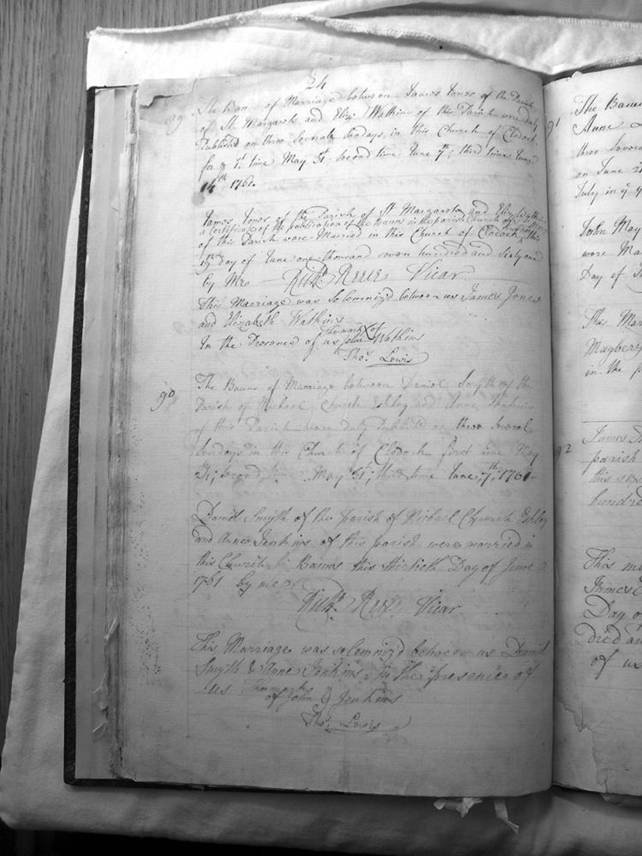 24
89 The Bann of Marriage between James Jones of the Parish
of St. Margarets and Eliz Watkins of this Parish were duly
Published on three Several Sundays in this Church of Clodock
for ye 1st time May 31, second time June 7th, third time June
14th 1761.
James Jones of the Parish of St Margarets and Elizabeth
a Certificate of the publication of the Banns in the parish Church of
of this Parish were Married in this Church of Clodock this
Day of June one thousand seven hundred and Sixty one
by Me Richd. Rees Vicar
This Marriage was Solemnized between us James Jones
and Elizabeth Watkins
In the Presence of us the mark X of John Watkins
Thos. Lewis
90 The Banns of Marriage between Daniel Smyth of the
Parish of Michael Church Eskley and Anne Jenkins
of this Parish were duly Published on three Several
Sundays in this Church of Clodock first time May
second May 31; third time June 7th 1761
Daniel Smyth of the parish of Michael Church Eskley
and Anne Jenkins of this parish were married in
this Church by Banns this thirtieth Day of June
1761 by me
Richd. Rees Vicar
This Marriage was solemnized between us Daniel
Smyth & Anne Jenkins in the presence of
us The mark
of John Jenkins
Thos. Lewis
91 The Banns
Anne
three Several
on June 2
July in
John May
were Ma
Day of
This Mar
Mayberry
in the p
92 James
parish
this
hundred
This m
James
Day of
died an
of us